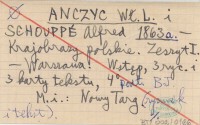 ANCZYC Wł. L. i
SCHOUPPÉ Alfred 1863a.-
Krajobrazy polskie. Zeszyt I.
- Warszawa: Wstęp, 3 ryc. i
3 karty tekstu, 4° BJ
M.i.: Nowy Targ (rysunek
i tekst).